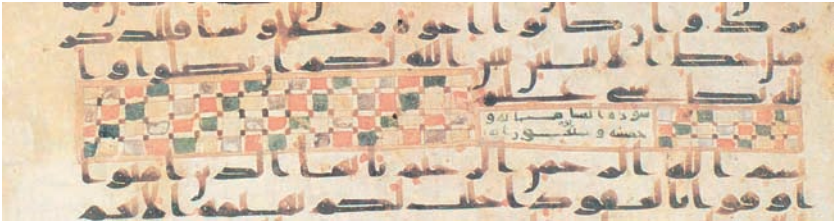 ترك وان كانوا اخوة رجلا ونسا فللذكر
مثل حظ الانثيين يبين الله لكم ان تضلوا وا
لله بكل شى عليم
سورة النسا مايه و
خمسة وسبعون ايه
بسم الله الرحمن الرحيم يايها الذين امنوا
اوفوا بالعقود احلت لكم بهيمة الانعم